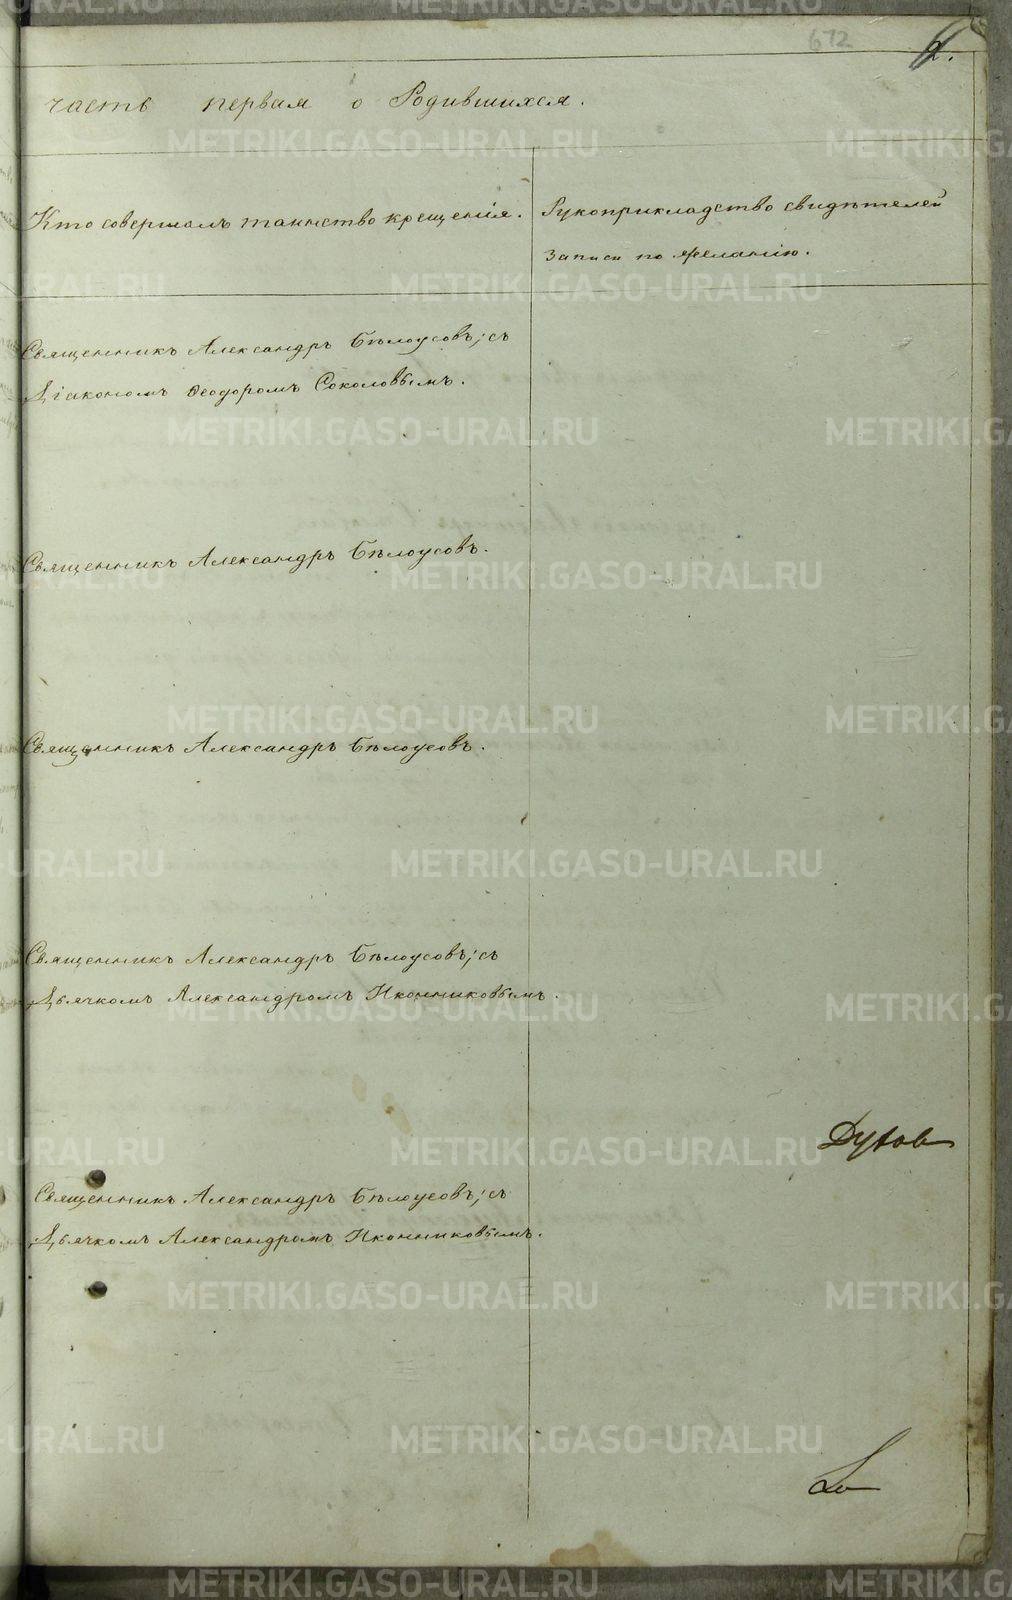 672
2.
часть первая о Родившихся.
Кто совершалъ таинство крещенія.
Рукоприкладство свидѣтелей
записи по желанію.
Священникъ Александръ Бѣлоусовъ; съ
Діакономъ Ѳеодоромъ Соколовымъ.
Священникъ Александръ Бѣлоусовъ.
Священникъ Александръ Бѣлоусовъ.
Священникъ Александръ Бѣлоусовъ; съ
Дьячкомъ Александромъ Иконниковымъ.
Священникъ Александръ Бѣлоусовъ; съ
Дьячкомъ Александромъ Иконниковымъ.
METRIKI.GASO-URAL.RU